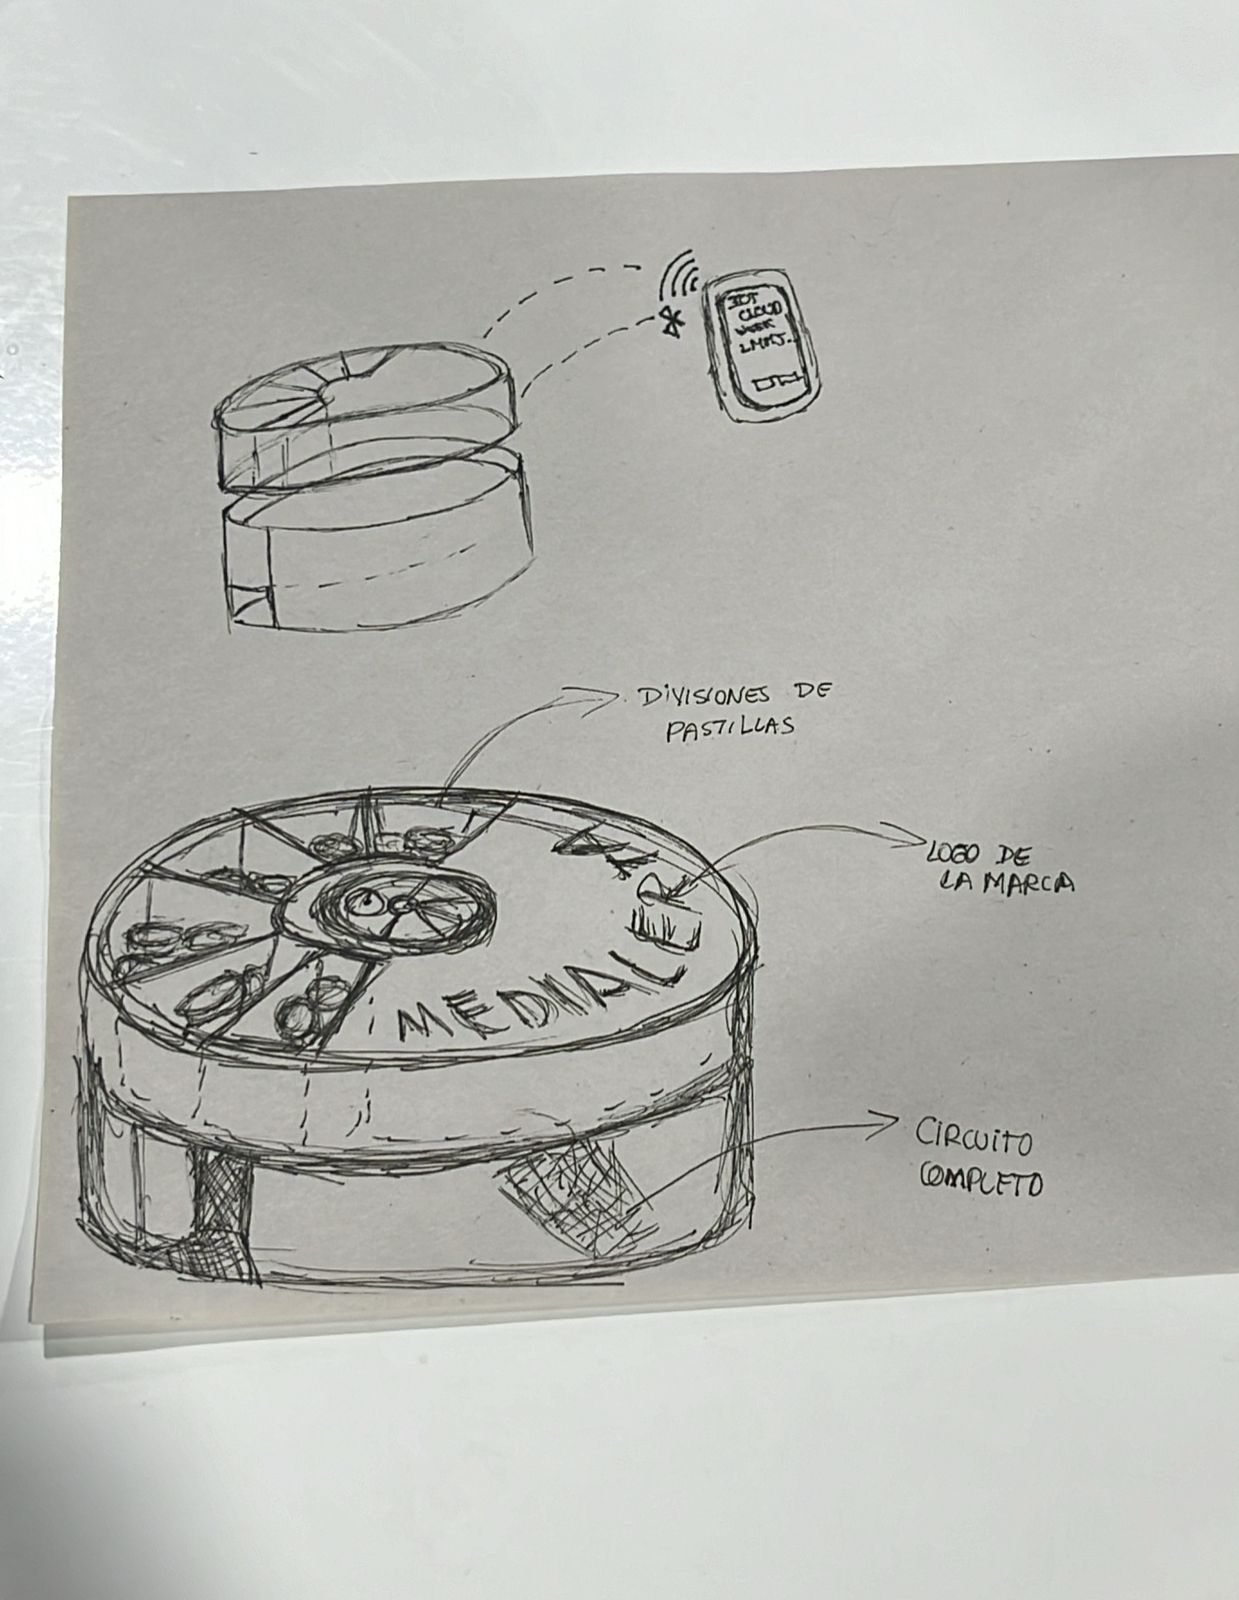 IOT
CLOUD
WEEK
LMMJ..
DIVISIONES DE
PASTILLAS
LOGO DE
LA MARCA
MEDIALER
CIRCUITO
COMPLETO